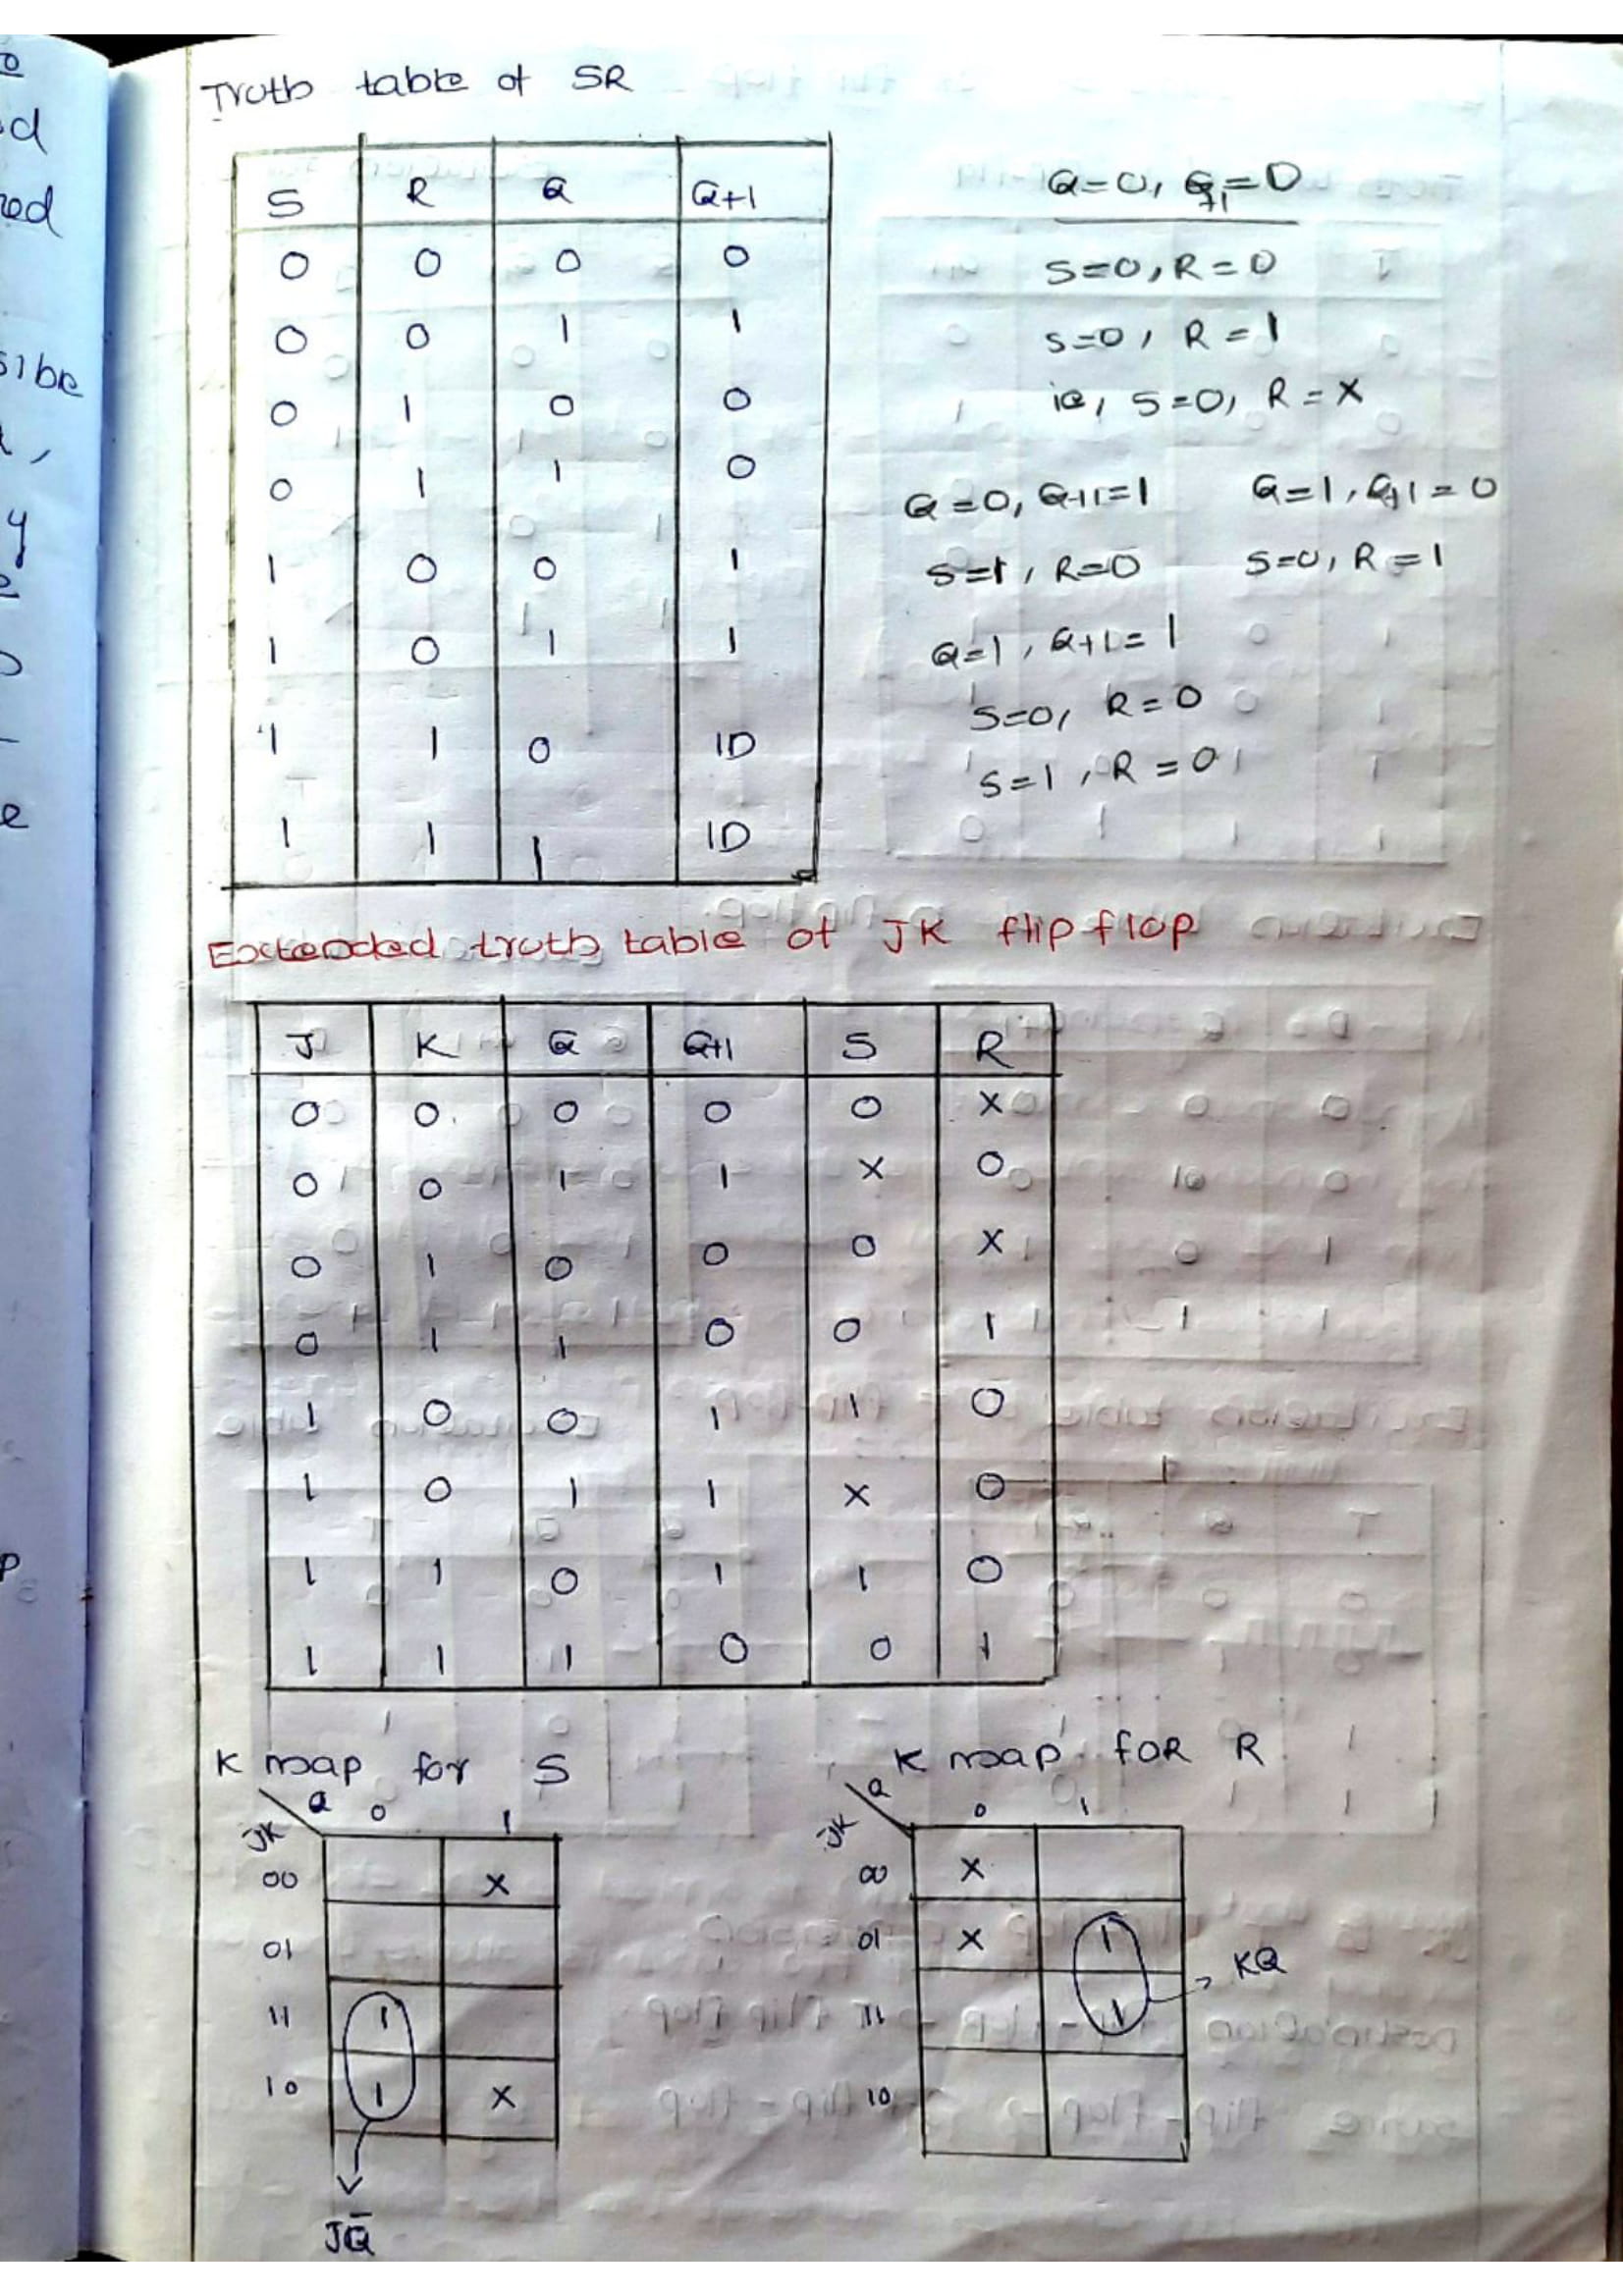 Truth table of SR
S R Q Q+1
0 0 0 0
0 0 1 1
0 1 0 0
0 1 1 0
1 0 0 1
1 0 1 1
1 1 0 ID
1 1 1 ID
Q=0, Q+1=0
S=0, R=0
S=0, R=1
ie, S=0, R=X
Q=0, Q+1=1 Q=1, Q+1=0
S=1, R=0 S=0, R=1
Q=1, Q+1=1
S=0, R=0
S=1, R=0
Extended truth table of JK flip flop
J K Q Q+1 S R
0 0 0 0 0 X
0 0 1 1 X 0
0 1 0 0 0 X
0 1 1 0 0 1
1 0 0 1 1 0
1 0 1 1 X 0
1 1 0 1 1 0
1 1 1 0 0 1
K map for S
Q 0 1
JK
00 X
01
11 1
10 1 X
JQ̅
K map foR R
Q 0 1
JK
00 X
01 X 1
KQ
11 1
10